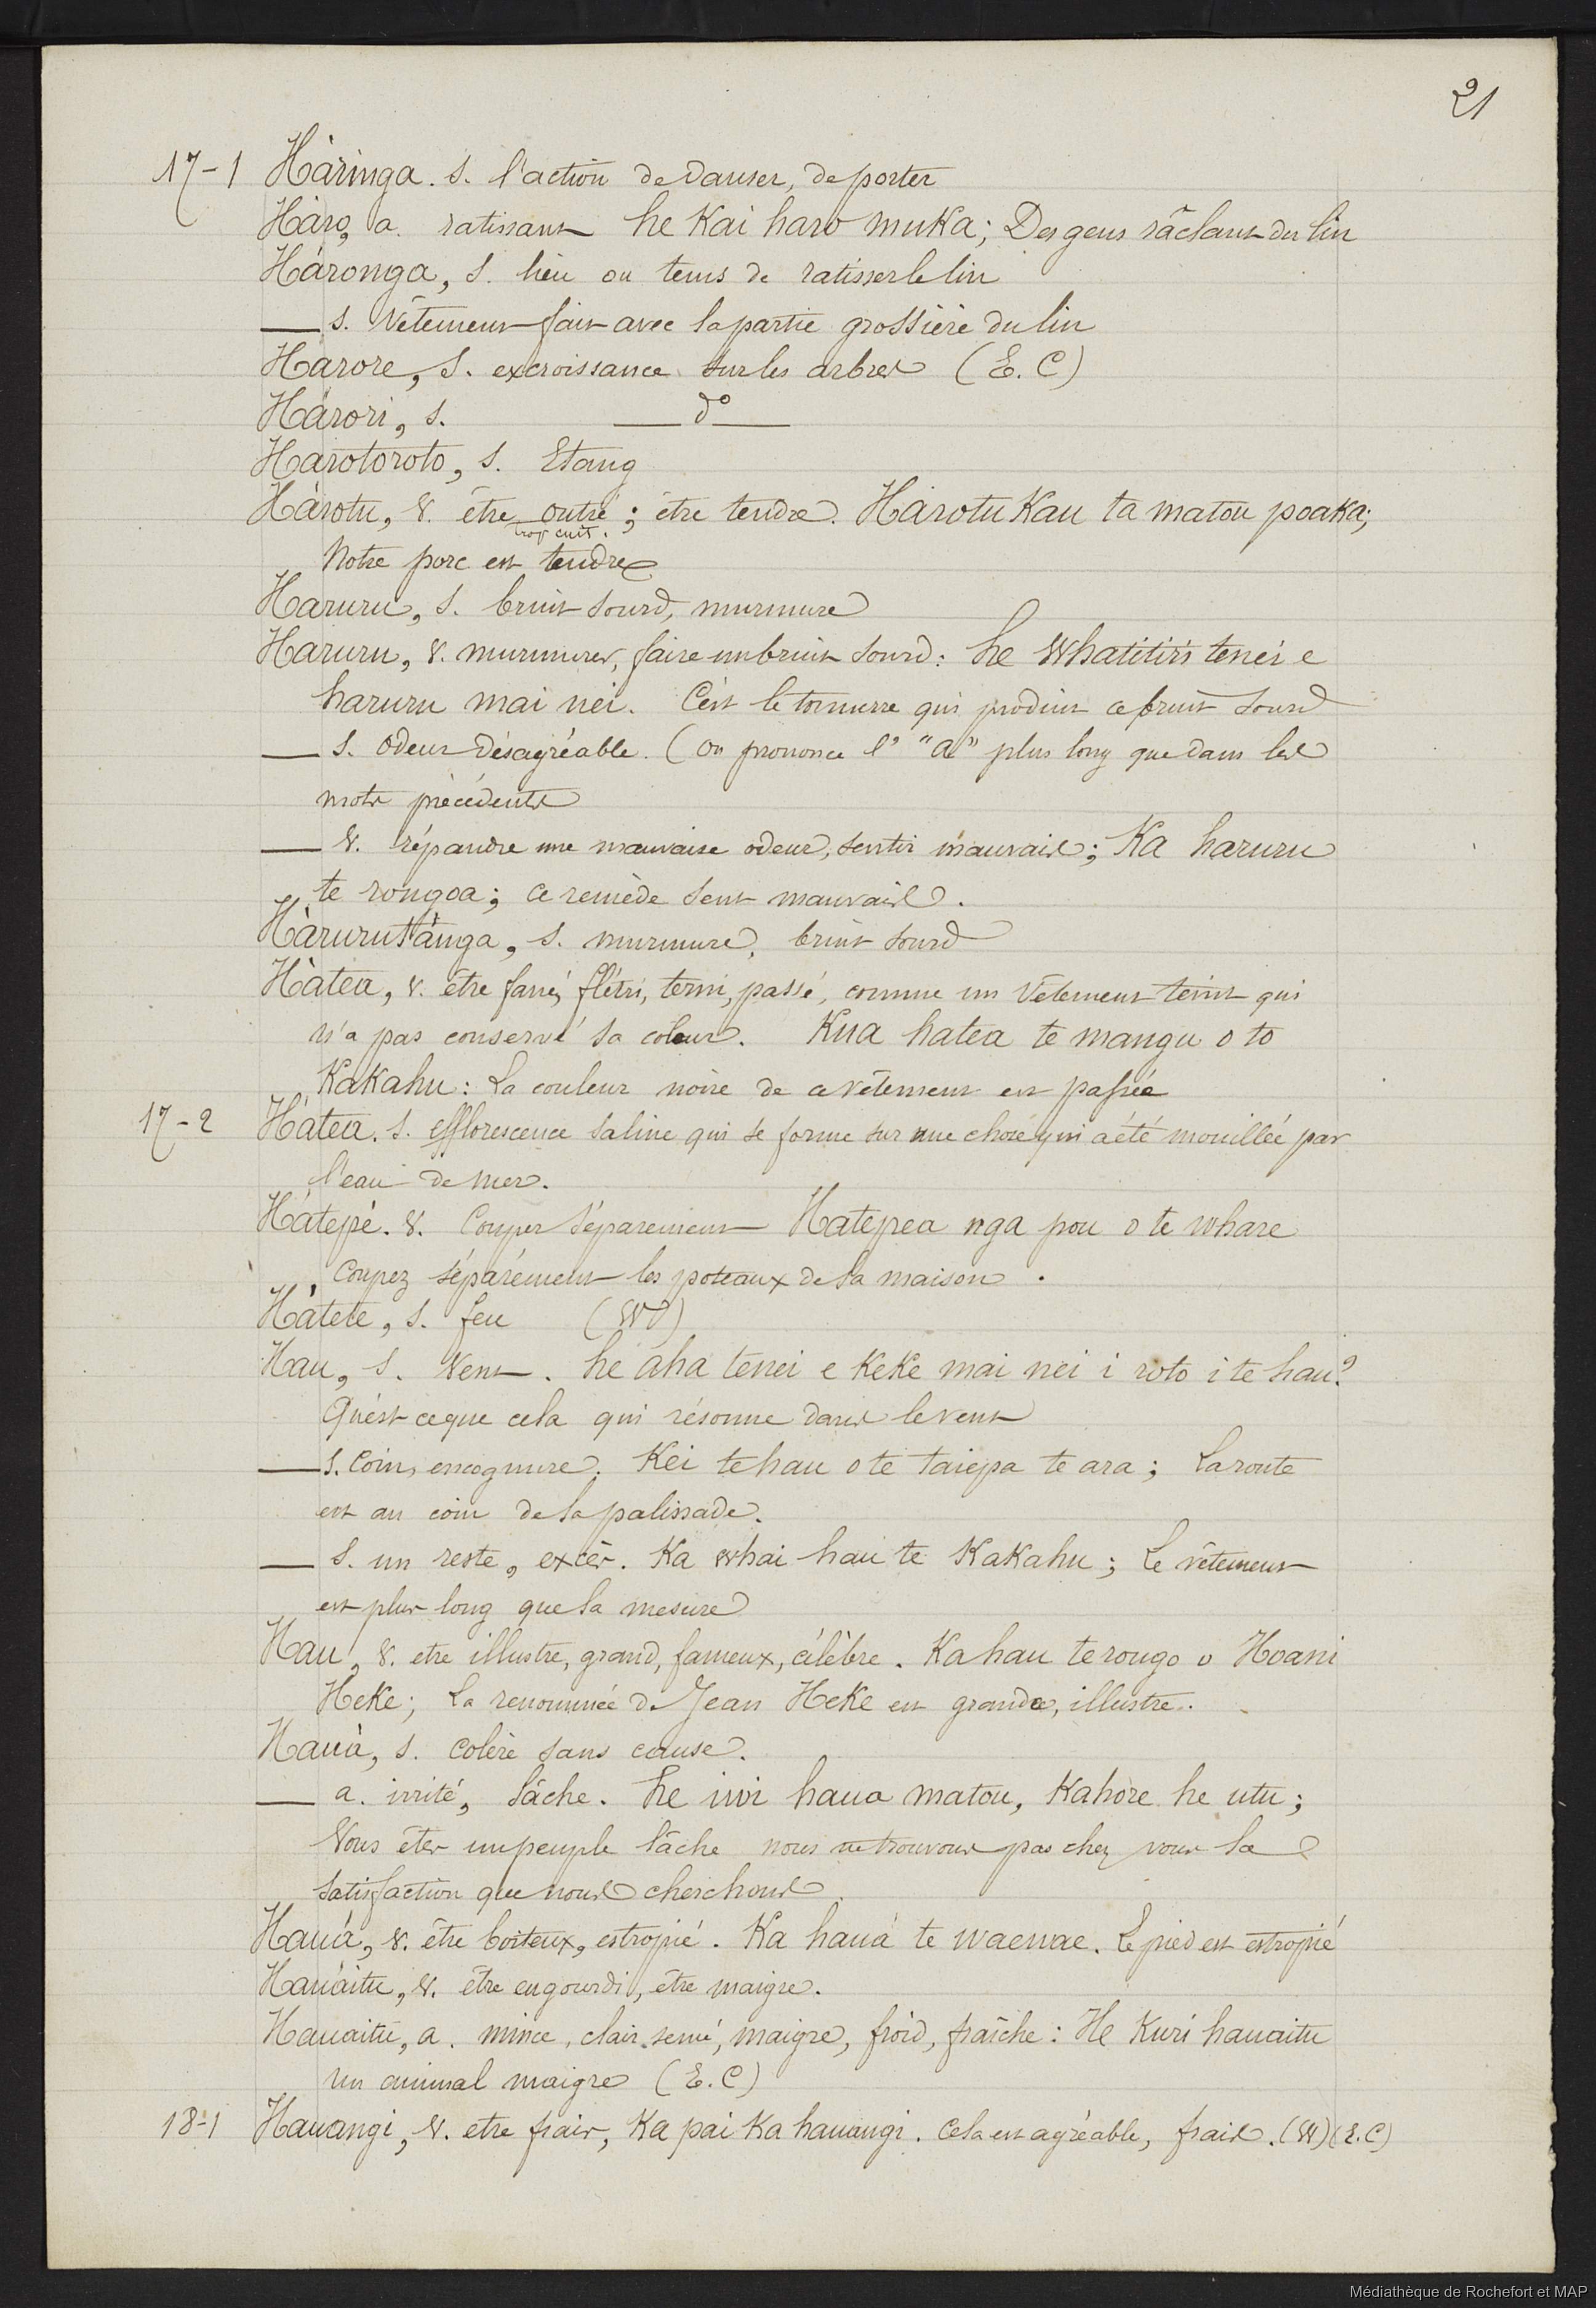 21
17-1 Hàringa. s. l'action de danser, de porter
Hàro, a. ratissant he Kai haro muKa; Des gens râclant du lin
Háronga, s. lieu ou tems de ratisser le lin
— s. Vêtement fait avec la partie grossière du lin
Harore, s. excroissance sur les arbres (E. C)
Hárori, s. — do —
Harotoroto, s. Etang
Hàrotu, v. être outré ; être tendre. Hàrotu Kau ta matou poaka;
trop cuit.
Notre porc est tendre
Haruru, s. bruit sourd, murmure
Haruru, v. murmurer, faire un bruit sourd : he Whatitiri tenei e
haruru mai nei. C'est le tonnerre qui produit ce bruit sourd
— s. Odeur désagréable. (On prononce l' "a" plus long que dans les
mots précédents
— v. répandre une mauvaise odeur, sentir mauvais ; Ka haruru
te rongoa ; ce remède sent mauvais.
Hàrurutánga, s. murmure, bruit sourd
Hàtea, v. être fané, flétri, terni, passé, comme un Vêtement teint qui
n'a pas conservé sa coleur. Kua hatea te mangu o to
KaKahu : La couleur noire de ce vêtement est passée
17-2 Hàtea. s. efflorescence saline qui se forme sur une chose qui a été mouillée par
l'eau de mer.
Hátepé. v. Couper séparement Hatepea nga pou o te whare
Coupez séparément les poteaux de la maison.
Hàtete, s. feu (W)
Hau, s. Vent. he aha tenei e KeKe mai nei i roto i te hau?
Qu'est ce que cela qui résonne dans le vent
— s. Coin, encognure. Kei te hau o te taiepa te ara ; La route
est au coin de la palissade.
— s. un reste, excès. Ka whai hau te KaKahu ; Le vêtement
est plus long que la mesure
Hau, v. etre illustre, grand, fameux, célèbre. Ka hau te rongo o Hoani
HeKe ; La renommée de Jean HeKe est grande, illustre.
Hauà, s. Colère sans cause.
— a. irrité, lâche. he iwi haua matou, Kahore he utu ;
Vous êtes un peuple lâche nous ne trouvons pas chez vous la
satisfaction que nous cherchons.
Hauá, v. être boiteux, estropié. Ka hauá te waewae. Le pied est estropié
Hauàitu, v. être engourdi, être maigre.
Hauaitu, a. mince, clair semé, maigre, froid, fraîche : He Kuri hauaitu
un animal maigre (E. C)
18-1 Hauangi, v. etre frais, Ka pai Ka hauangi. Cela est agréable, frais. (W) (E. C)
Médiathèque de Rochefort et MAP